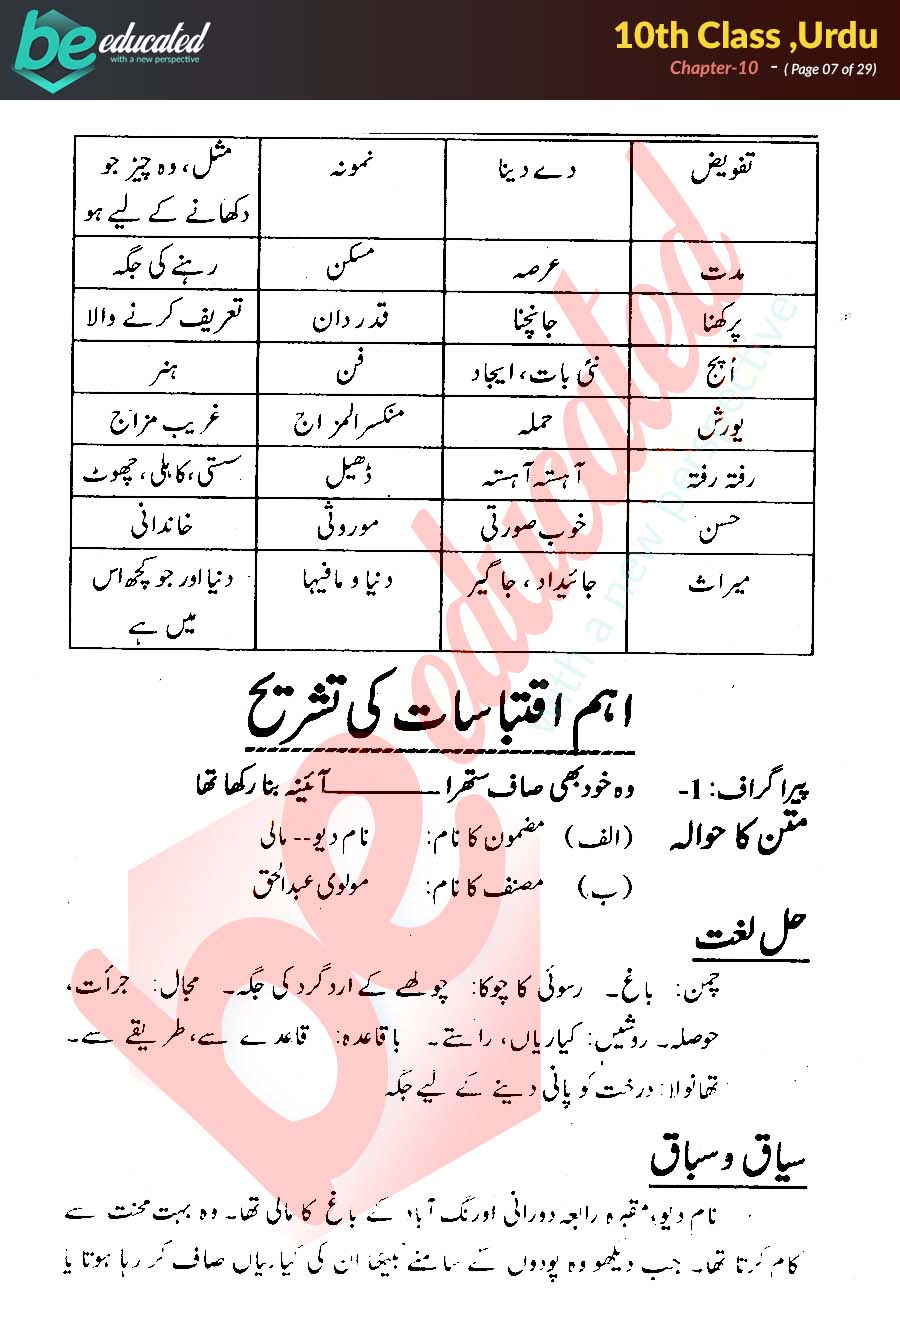 be educated
with a new perspective
10th Class ,Urdu
Chapter-10 - ( Page 07 of 29)
تفویض دے دینا نمونہ مثل، وہ چیز جو
دکھانے کے لیے ہو
مدت عرصہ مسکن رہنے کی جگہ
پرکھنا جانچنا قدر دان تعریف کرنے والا
اُپج نئی بات، ایجاد فن ہنر
یورش حملہ منکسر المزاج غریب مزاج
رفتہ رفتہ آہستہ آہستہ ڈھیل سستی، کاہلی، چھوٹ
حسن خوب صورتی موروثی خاندانی
میراث جائیداد، جاگیر دنیا و مافیہا دنیا اور جو کچھ اس
میں ہے
اہم اقتباسات کی تشریح
پیراگراف: 1- وہ خود بھی صاف ستھرا ــــــــــــ آئینہ بنا رکھا تھا
متن کا حوالہ (الف) مضمون کا نام: نام دیو-- مالی
(ب) مصنف کا نام: مولوی عبدالحق
حل لغت
چمن: باغ۔ رسوئی کا چوکا: چولھے کے اردگرد کی جگہ۔ مجال: جرأت،
حوصلہ۔ روشیں: کیاریاں، راستے۔ باقاعدہ: قاعدے سے، طریقے سے۔
تھانولا: درخت کو پانی دینے کے لیے جگہ
سیاق و سباق
نام دیو، مقبرہ رابعہ دورانی اورنگ آباد کے باغ کا مالی تھا۔ وہ بہت محنت سے
کام کرتا تھا۔ جب دیکھو وہ پودوں کے سامنے بیٹھا ان کی کیاریاں صاف کر رہا ہوتا یا
be educated
with a new perspective